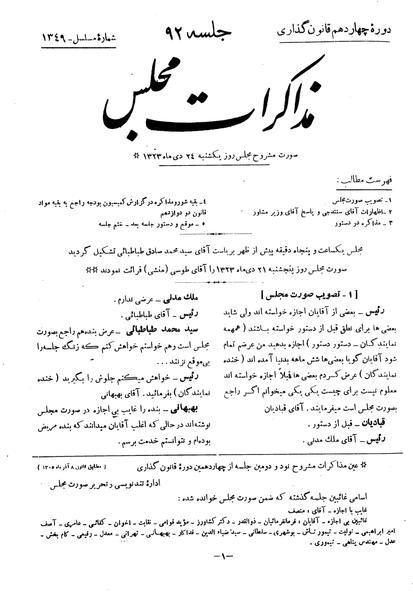 دورهٔ چهاردهم قانون‌گذاری
جلسه ۹۲
شمارهٔ مسلسل - ۱۳۴۹
مذاکرات مجلس
صورت مشروح مجلس روز یکشنبه ۲۴ دی ماه ۱۳۲۳ *
فهرست مطالب:
۱- تصویب صورت مجلس
۲- اظهارات آقای سنندجی و پاسخ آقای وزیر مشاور
۳- مذاکره در دستور
۴- بقیه شور و مذاکره در گزارش کمیسیون بودجه راجع به بقیه مواد
قانون دو دوازدهم
۵- موقع و دستور جلسه بعد - ختم جلسه
مجلس یکساعت و پنجاه دقیقه پیش از ظهر بریاست آقای سید محمد صادق طباطبائی تشکیل گردید
صورت مجلس روز پنجشنبه ۲۱ دی ماه ۱۳۲۳ را آقای طوسی (منشی) قرائت نمودند **
[ ۱ - تصویب صورت مجلس ]
رئیس - بعضی از آقایان اجازه خواسته اند ولی شاید
بعضی ها برای نطق قبل از دستور خواسته باشند ( همهمه
نمایندگان - دستور دستور ) اجازه بدهید من عرضم تمام
شود آقایان گویا بعضی‌ها شش ماهه بدنیا آمده اند ( خنده
نمایندگان ) عرض کردم بعضی ها قبلاً اجازه خواسته اند
معلوم نیست برای چیست یکی یکی میخوانم اگر راجع
بصورت مجلس است میفرمایند . آقای قبادیان
قبادیان - قبل از دستور .
رئیس - آقای ملك مدنی .
ملك مدنی - عرضی ندارم .
رئیس - آقای طباطبائی .
سید محمد طباطبائی - عرض بنده هم راجع بصورت
مجلس است وهم خواستم خواهش کنم که زنگ جلسه را
بی‌موقع نزنند ...
رئیس - خواهش میکنم جلوش را بگیرید ( خنده
نمایندگان ) بفرمائید . آقای بهبهانی
بهبهانی - بنده را غایب بی اجازه در صورت مجلس
نوشته‌اند در حالی که اغلب آقایان میدانند که بنده مریض
بوده‌ام و نتوانستم خدمت برسم .
* عین مذاکرات مشروح نود و دومین جلسه از چهاردهمین دورهٔ قانون گذاری
( مطابق قانون ۸ آذر ماه ۱۳۰۵ )
ادارهٔ تندنویسی و تحریر صورت مجلس
اسامی غائبین جلسه گذشته که ضمن صورت مجلس خوانده شده :
غایب با اجازه - آقای : منصف
غائبین بی اجازه - آقایان : فرمانفرمائیان - ذوالقدر - دکتر کشاورز - مؤید قوامی - نقابت - اخوان - کفائی - عامری - آصف
امیر ابراهیمی - تولیت - تیمور تاش - بوشهری - سلطانی - سید ضیاءالدین - فداکار - بهبهانی - تهرانی - معدل - رفیعی - کام بخش -
عدل - مهندس پناهی - تیموری .
-۱-